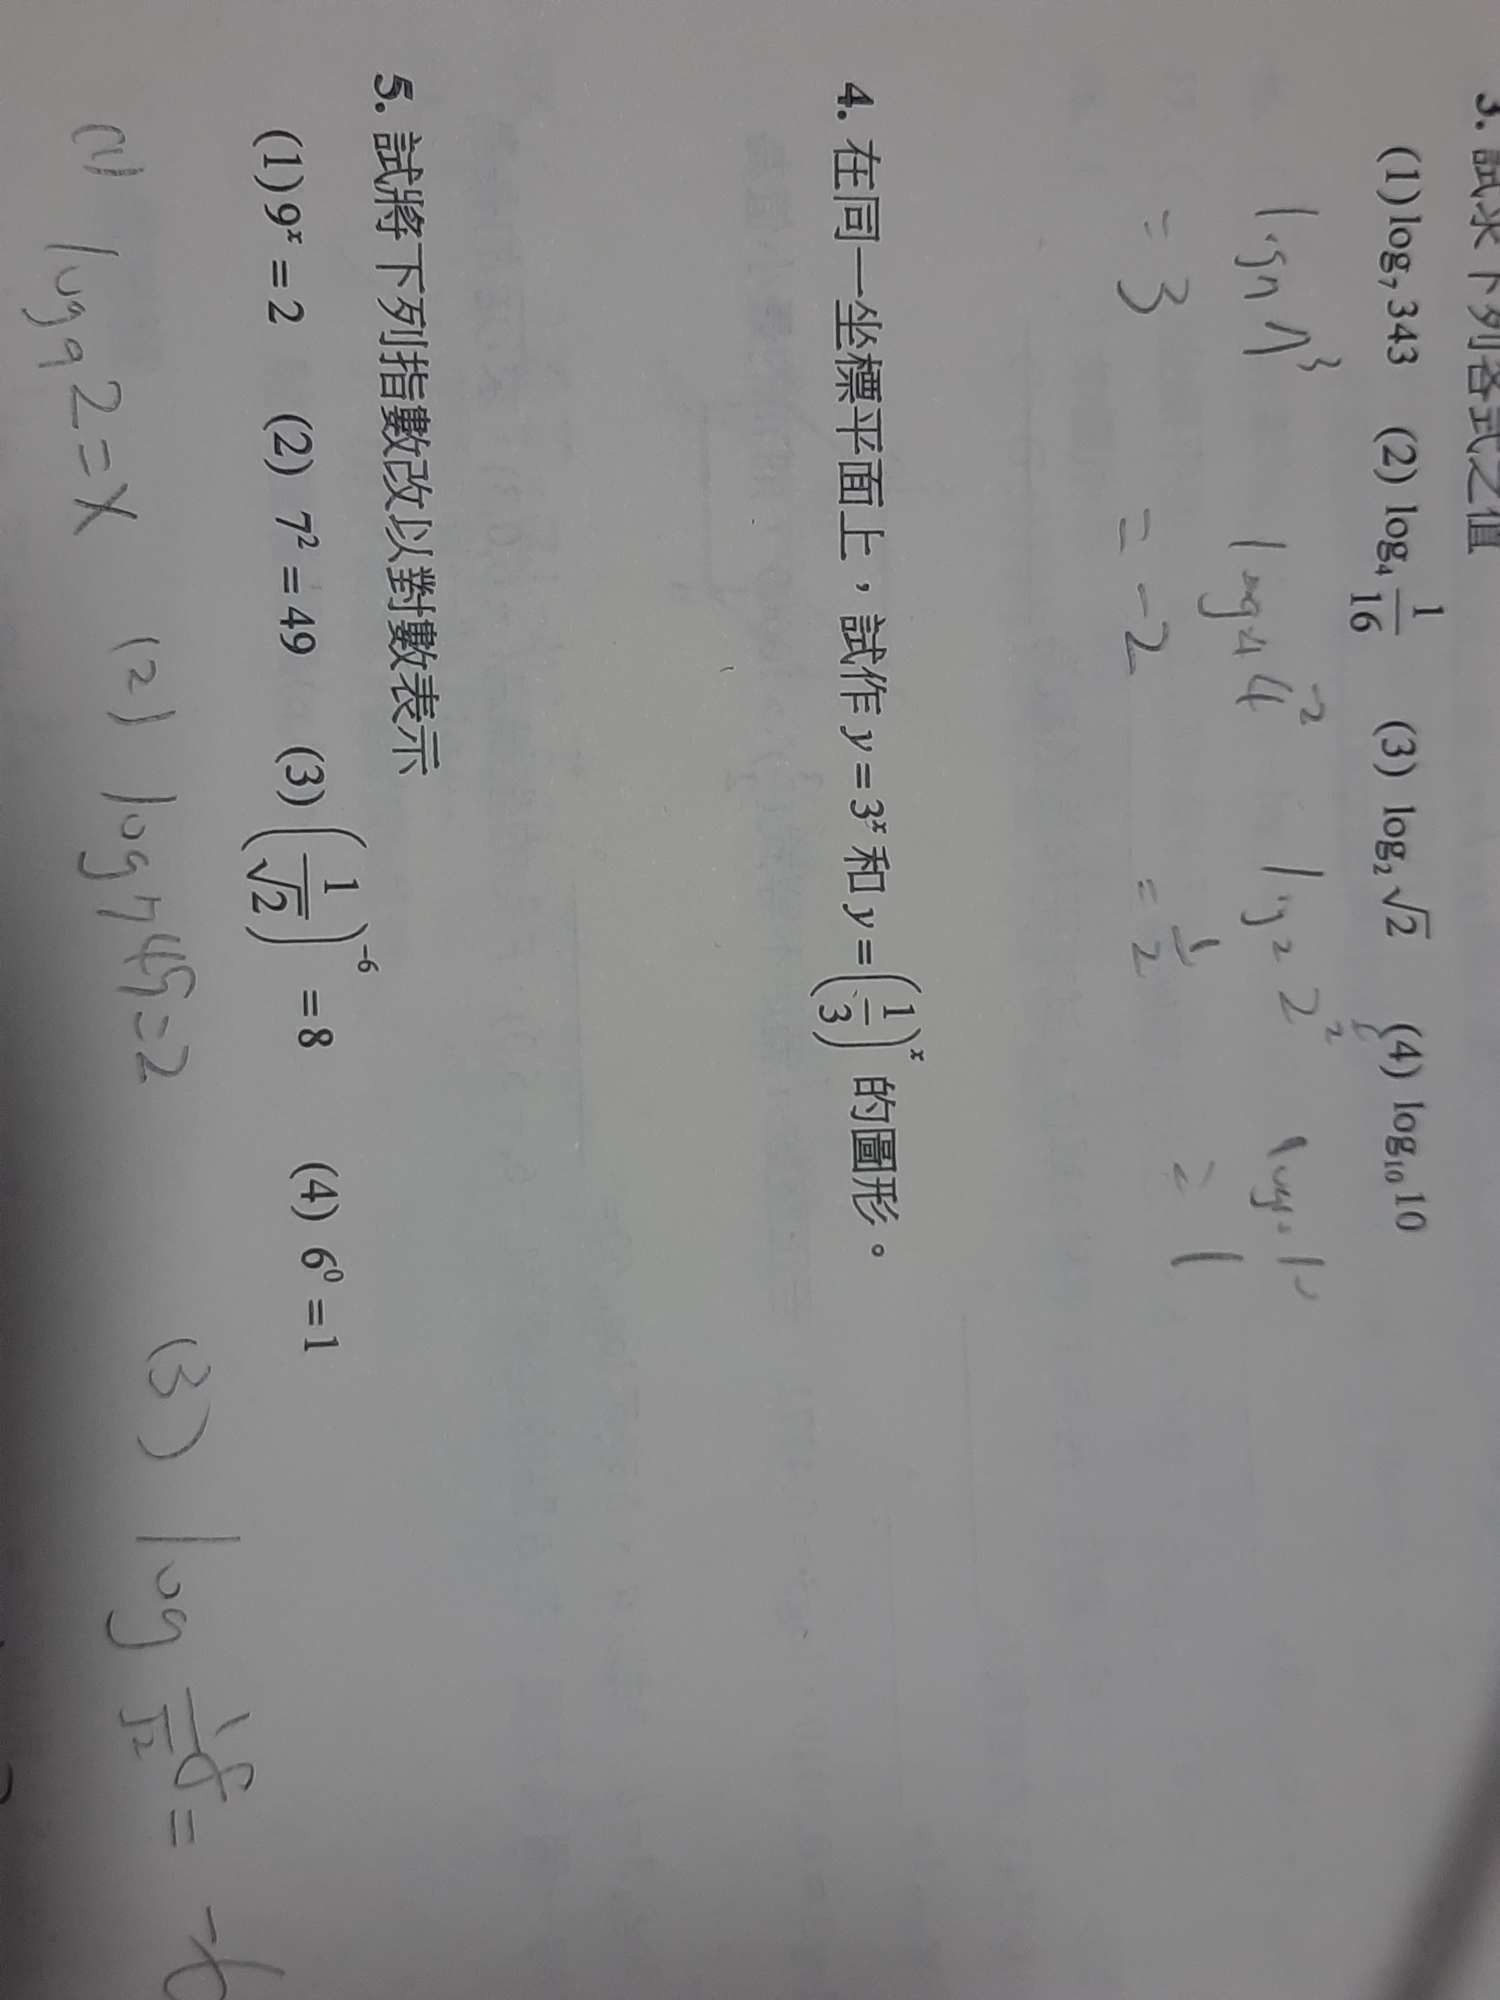 3. 試求下列各式之值
(1) log₇ 343 (2) log₄ 1/16 (3) log₂ √2 (4) log₁₀ 10
log₇ 7³ log₄ 4⁻² log₂ 2
= 3 = -2 = 1/2 = 1
4. 在同一坐標平面上，試作 y = 3ˣ 和 y = (1/3)ˣ 的圖形。
5. 試將下列指數改以對數表示
(1) 9ˣ = 2 (2) 7² = 49 (3) (1/√2)⁻⁶ = 8 (4) 6⁰ = 1
(1) log₉ 2 = x (2) log₇ 49 = 2 (3) log 1/√2 8 = -6